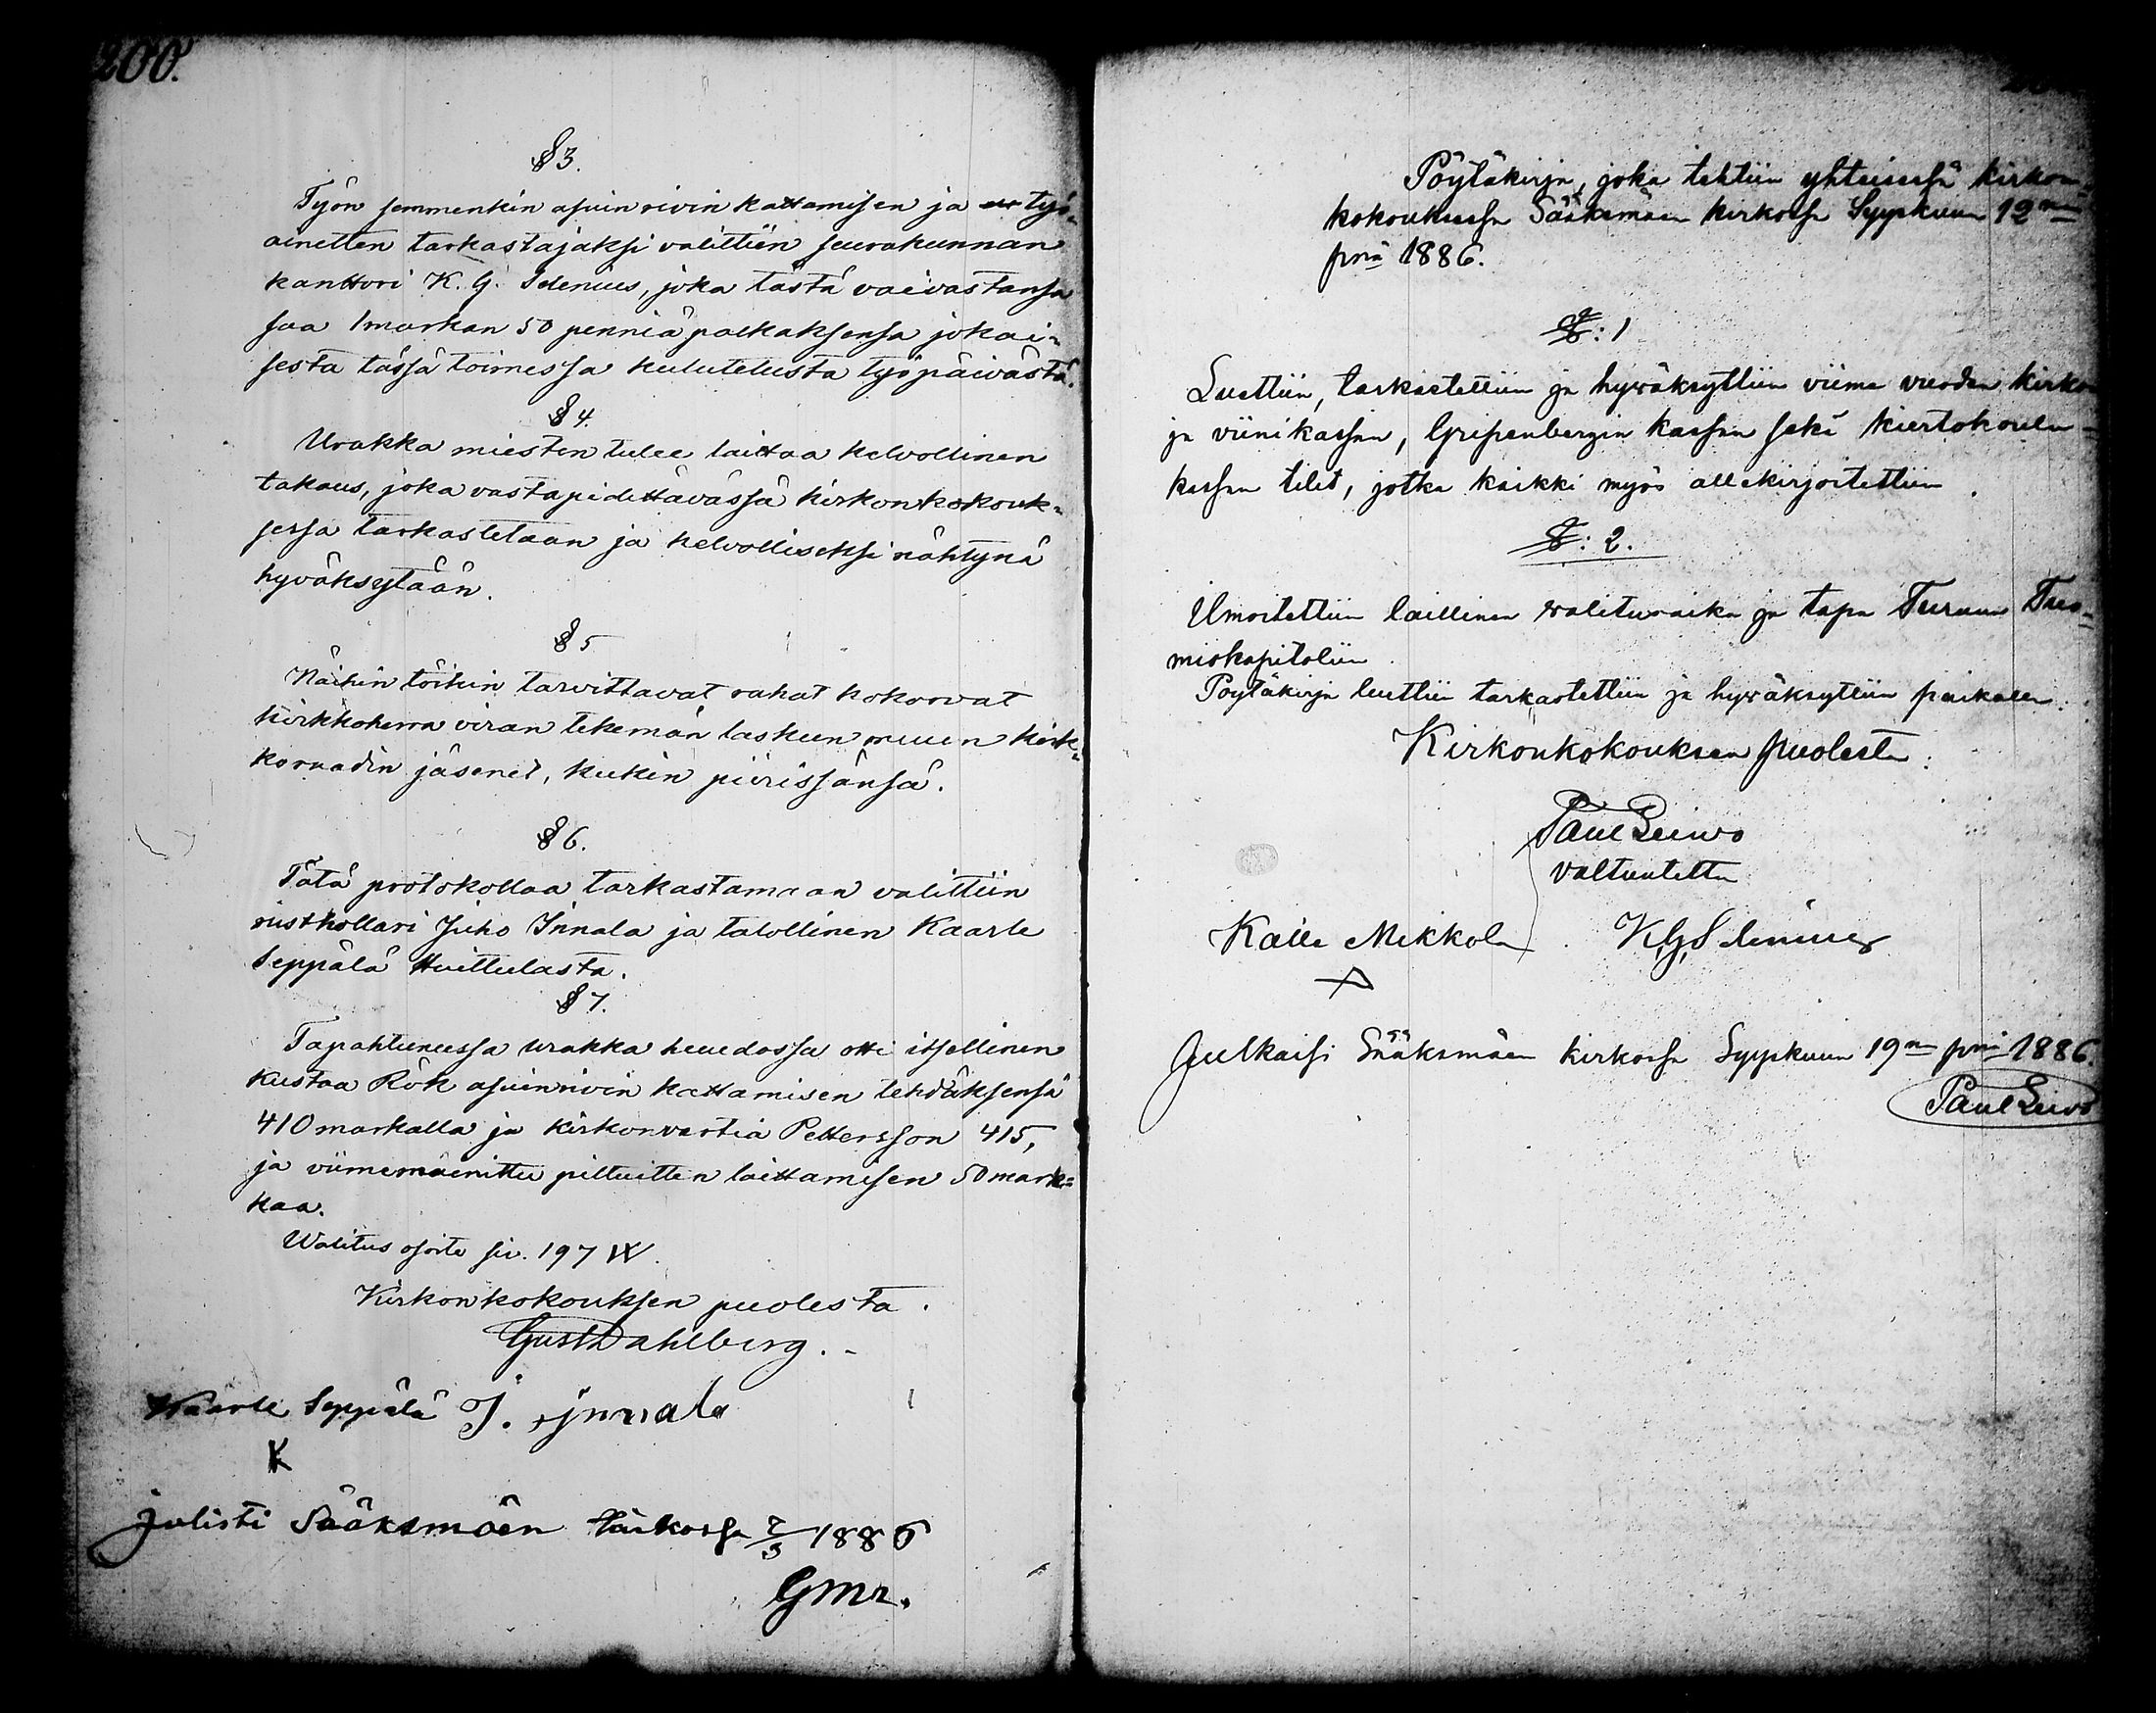 200.
§ 3.
Työn semmenkin asuinrivin kattamisen ja työ-
ainetten tarkastajaksi valittiin seurakunnan
kanttori K. G. Selenius, joka tästä vaivastansa
saa 1 markan 50 penniä palkaksensa jokai-
sesta tässä toimessa kulutelusta työpäivästä.
§ 4.
Urakka miesten tulee laittaa kelvollinen
takaus, joka vastapidettävässä kirkonkokouk-
sessa tarkastetaan ja kelvolliseksi nähtynä
hyväksytään.
§ 5
Näihin töihin tarvittavat rahat kokoovat
kirkkoherra viran tekemän laskun muuen kirk-
koraadin jäsenet, kukin piirissänsä.
§ 6.
Tätä protokollaa tarkastamaan valittiin
rusthollari Juho Innala ja talollinen Kaarle
Seppälä Huittulasta.
§ 7.
Tapahtuneessa urakka huudossa otti itsellinen
Kustaa Rök asuinrivin kattamisen tehdäksensä
410 markalla ja kirkonvartia Pettersson 415,
ja viimemainittu pilttuitten laittamisen 50 mark-
kaa.
Walitus osoite siv. 197 IV.
Kirkonkokouksen puolesta.
Gust Dahlberg.
Kaarle Seppälä J. Innala
K
julisti Sääksmäen kirkossa 7/3 1886
Gmr.
Pöytäkirja, joka tehtiin yhteisessä kirkon
kokouksessa Sääksmäen kirkossa Syyskuun 12 m
pnä 1886.
§: 1
Luettiin, tarkastettiin ja hyväksyttiin viime vuoden kirkon
ja viinikassan, Gripenbergin kassan sekä kiertokoulu-
kassan tilit, jotka kaikki myös allekirjoitettiin.
§: 2.
Ilmoitettiin laillinen valitusaika ja tapa Turun Tuo-
miokapitoliin.
Pöytäkirja luettiin tarkastettiin ja hyväksyttiin paikalla.
Kirkonkokouksen puolesta:
Paul Leiwo
valtuutettu
Kalle Mikkola K. G. Selenius
Julkaisi Sääksmäen kirkossa Syyskuun 19 m pnä 1886.
Paul Leiwo